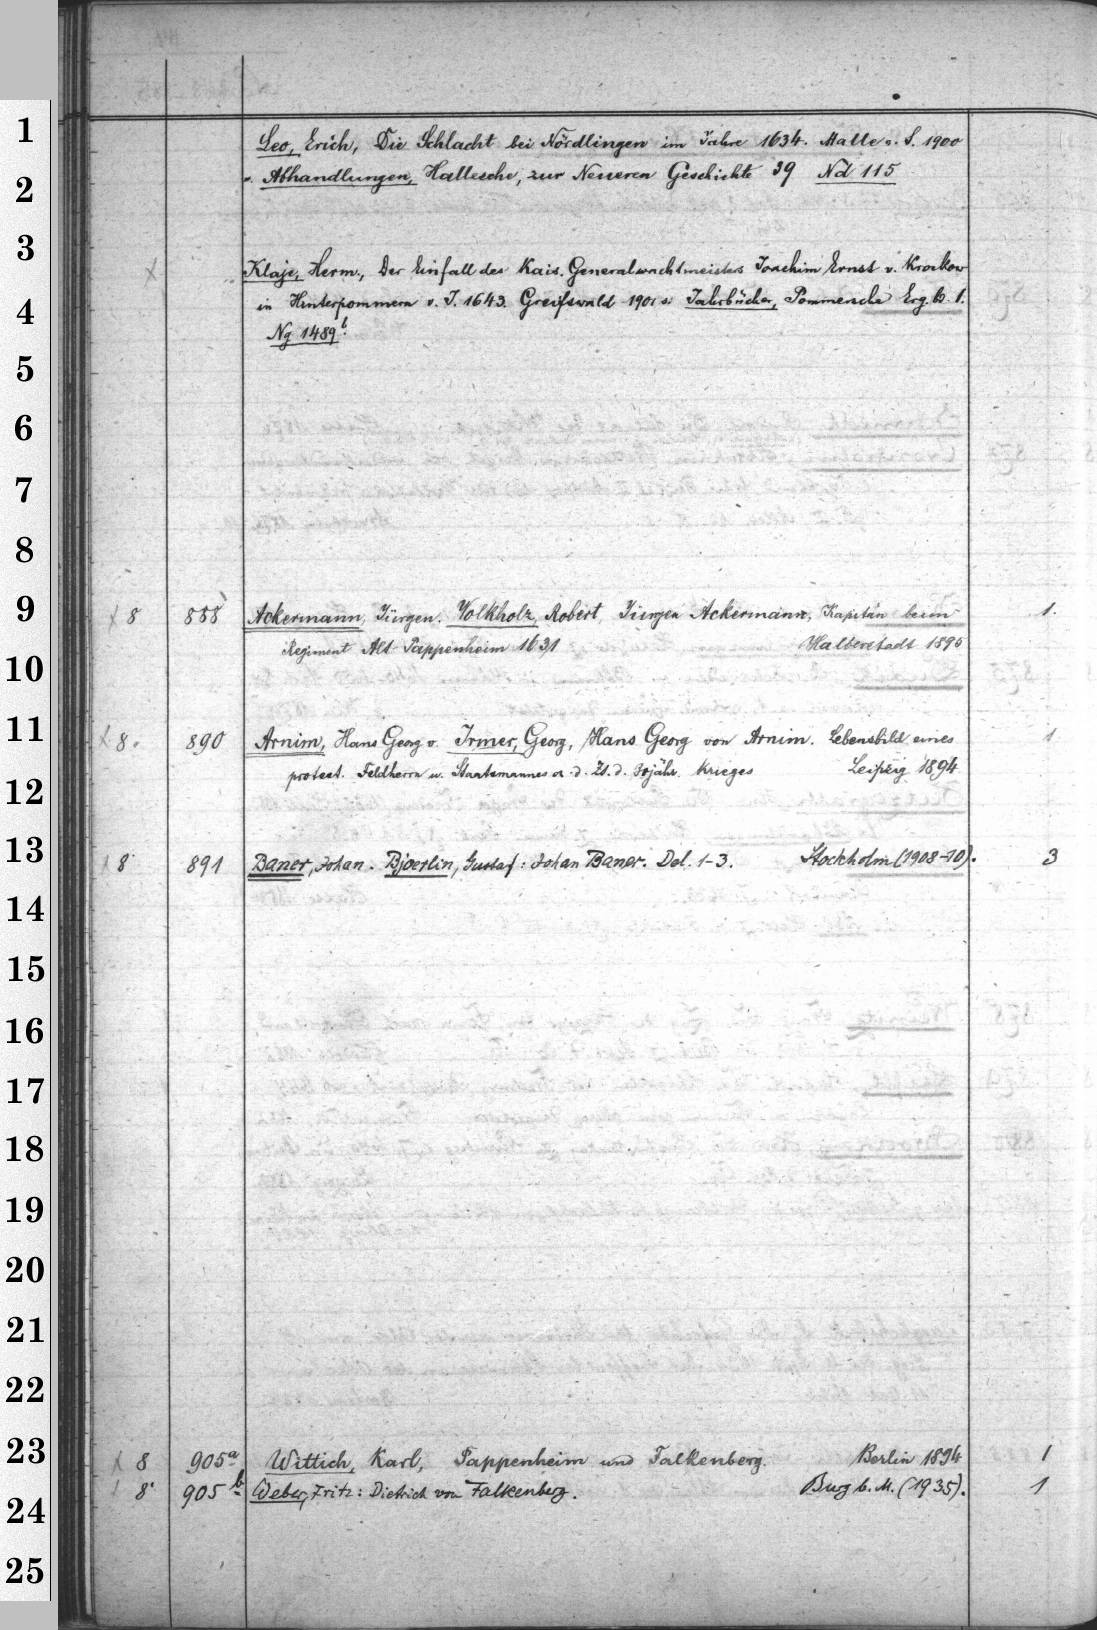 1
2
3
4
5
6
7
8
9
10
11
12
13
14
15
16
17
18
19
20
21
22
23
24
25
Leo, Erich, Die Schlacht bei Nördlingen im Jahre 1634. Halle a. S. 1900
s. Abhandlungen, Hallesche, zur Neueren Geschichte 39 Nd 115
X Klaje, Herm., Der Einfall des Kais. Generalwachtmeisters Joachim Ernst v. Krockow
in Hinterpommern v. J. 1643. Greifswald 1901 s. Jahrbücher, Pommersche Erg. b. 1.
Ng 1489 b.
X 8 888 Ackermann, Jürgen. Volkholz, Robert, Jürgen Ackermann, Kapitän beim 1.
Regiment Alt-Pappenheim 1631 Halberstadt 1895
X 8. 890 Arnim, Hans Georg v. Irmer, Georg, Hans Georg von Arnim. Lebensbild eines 1
protest. Feldherrn u. Staatsmannes a. d. Zt. d. 30jähr. Krieges Leipzig 1894
8 891 Baner, Johan. Bjoerlin, Gustaf: Johan Baner. Del. 1-3. Stockholm (1908-10). 3
X 8 905 a Wittich, Karl, Pappenheim und Falkenberg. Berlin 1894 1
8 905 b Weber, Fritz: Dietrich von Falkenberg. Burg b. M. (1935). 1